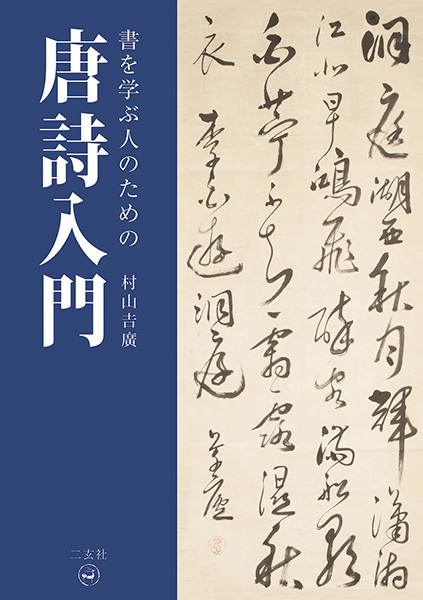 書を学ぶ人のための
唐詩入門
村山吉廣
二玄社
洞庭湖西秋月輝瀟湘
江北早鴻飛醉客滿船歌
白苧不知霜露湿秋
衣 李白遊洞庭